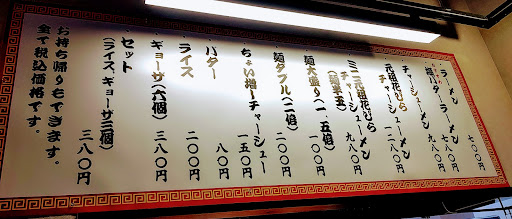 ラーメン 七〇〇円
塩バターラーメン 七八〇円
チャーシューメン 九八〇円
元祖花びら
チャーシューメン 一二八〇円
ミニ元祖花びら
チャーシューメン 九八〇円
麺大盛り(一.五倍) 一〇〇円
麺ダブル(二倍) 二〇〇円
ちょい増しチャーシュー 一五〇円
バター 八〇円
ライス 二〇〇円
ギョーザ(六個) 三八〇円
セット
(ライス、ギョーザ三個) 三八〇円
お持ち帰りもできます。
全て税込価格です。